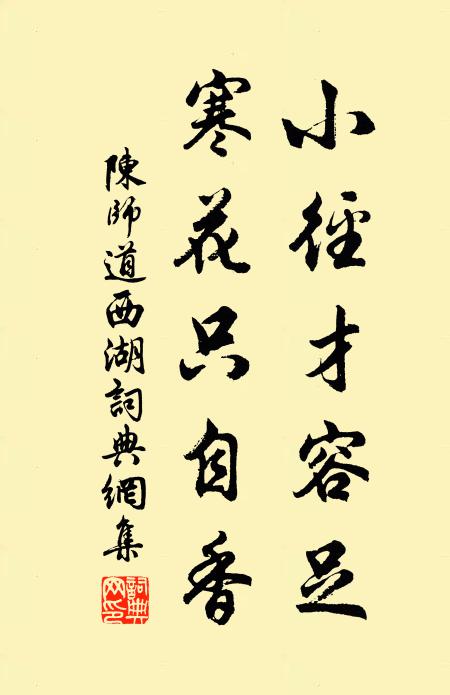 小徑才容足
寒花只自香
陳師道西湖詞典網集
詞典網印